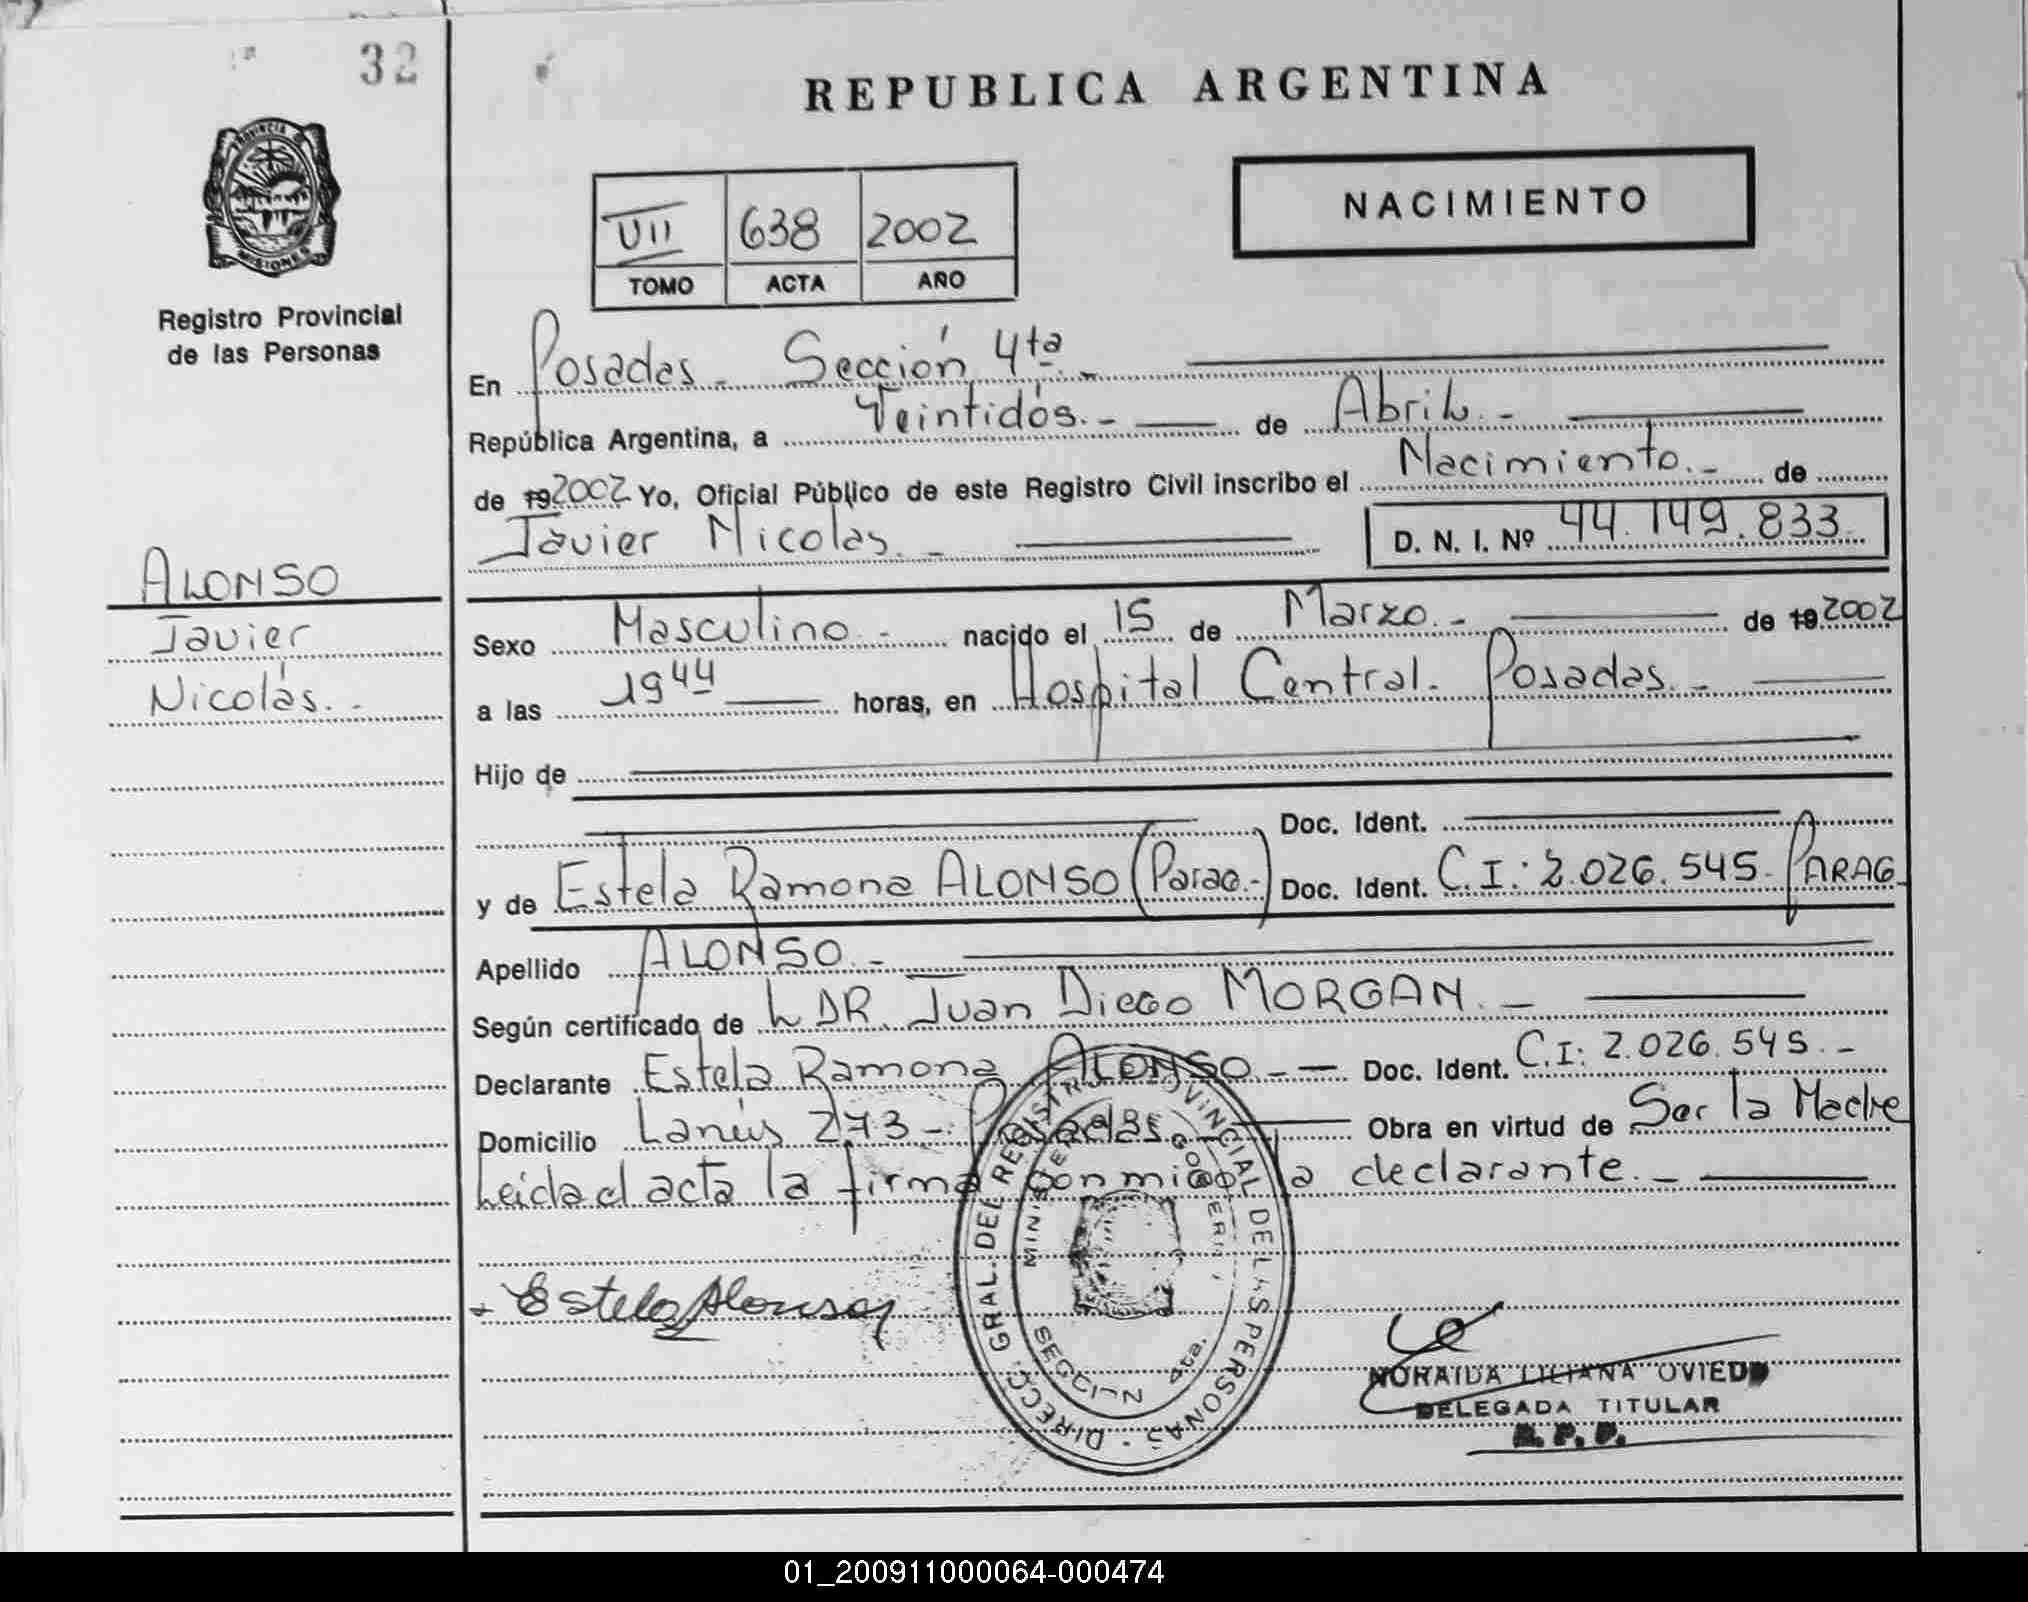 32
REPUBLICA ARGENTINA
PROVINCIA DE
MISIONES
Registro Provincial
de las Personas
VII 638 2002
TOMO ACTA AÑO
NACIMIENTO
En Posadas - Sección 4ta. -
República Argentina, a Veintidós. - de Abril. -
de 192002 Yo, Oficial Público de este Registro Civil inscribo el Nacimiento. - de
Javier Nicolas. - D. N. I. Nº 44.149.833.
ALONSO
Javier
Nicolás. -
Sexo Masculino. - nacido el 15 de Marzo. - de 192002
a las 19 44 horas, en Hospital Central. Posadas. -
Hijo de
Doc. Ident.
y de Estela Ramona ALONSO (Parag.-) Doc. Ident. C.I.: 2.026.545. PARAG.
Apellido ALONSO. -
Según certificado de LDR. Juan Diego MORGAN. -
Declarante Estela Ramona ALONSO. - Doc. Ident. C.I: 2.026.545. -
Domicilio Lanús 273 - Posadas. Obra en virtud de Ser la Madre
Leida el acta la firma conmigo la declarante. -
Estela Alonso
DIRECC. GRAL. DEL REGISTRO PROVINCIAL DE LAS PERSONAS
SECCION 4ta.
NORAIDA LILIANA OVIEDO
DELEGADA TITULAR
R. P. P.
01_200911000064-000474